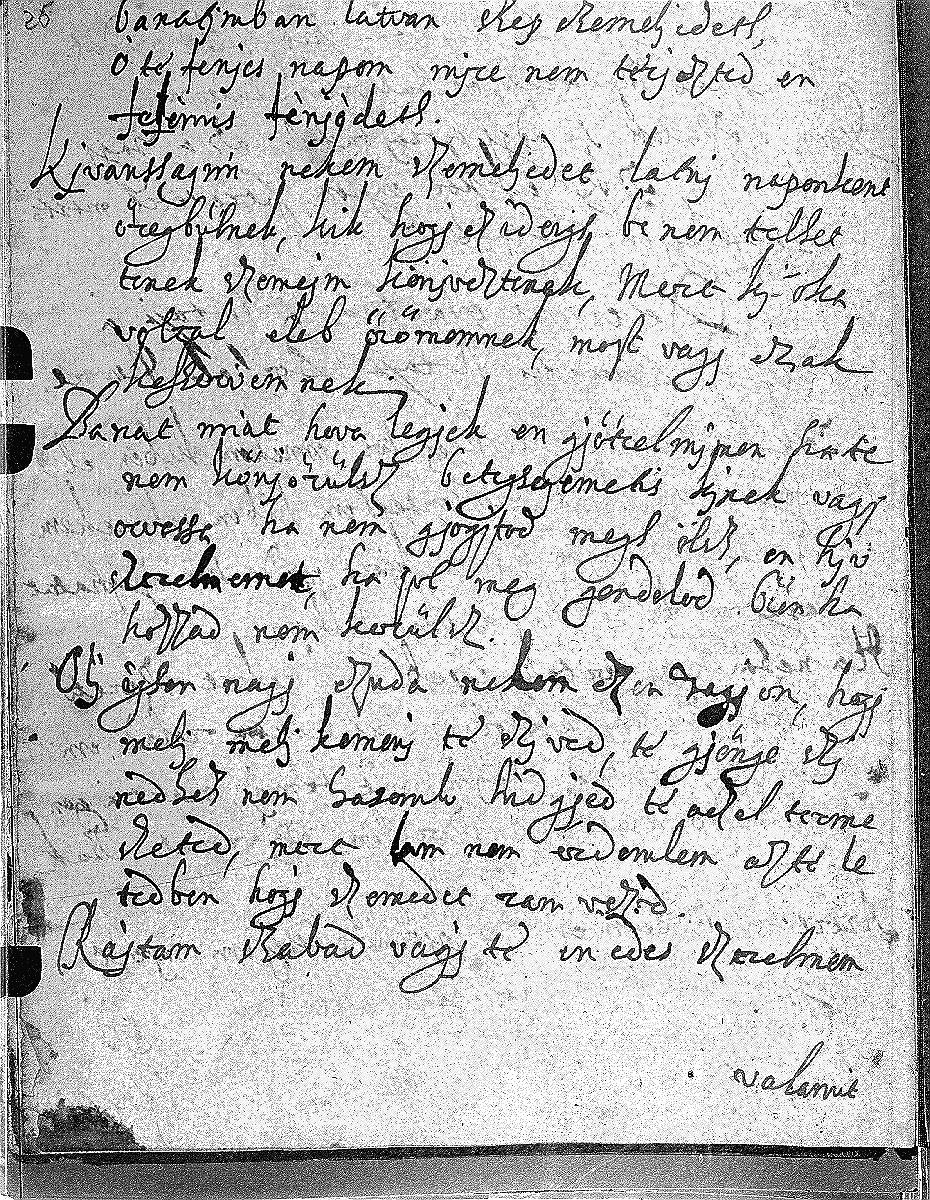 26 banatjmban latvan szep szemeljedeth,
O te fenjes napom mjre nem terjezted en
felemis fènjèdeth.
Kjvanssagim nekem szemeljedet latnj naponkent
öregbülnek, kik hogj ez ideigh be nem telhet
tenek szemejm könjveztenek, Mert kj oka
voltal eleb örömemnek, most vagj czak
keserwsemnek.
Banat miat hova legjek en gjötrelmjmen ha te
nem könjörülsz betegsegemetis kjnek vagj
orvossa, ha nem gjogjtod megh ölsz, en hjv
szerelmemet, ha jol meg gondolod bün ha
hozzad nem kerülsz.
Oh Isten nagj czuda nekem ezen vagjon, hogj
melj melj kemenj te szjved, te gjönge szj
nedhez nem hasomlo hidgjed te azzal terme
szeted, mert lam nem erdemlem azt te le
tedben hogj szemedet ram vessed.
Rajtam szabad vagj te en edes szerelmem
valamit